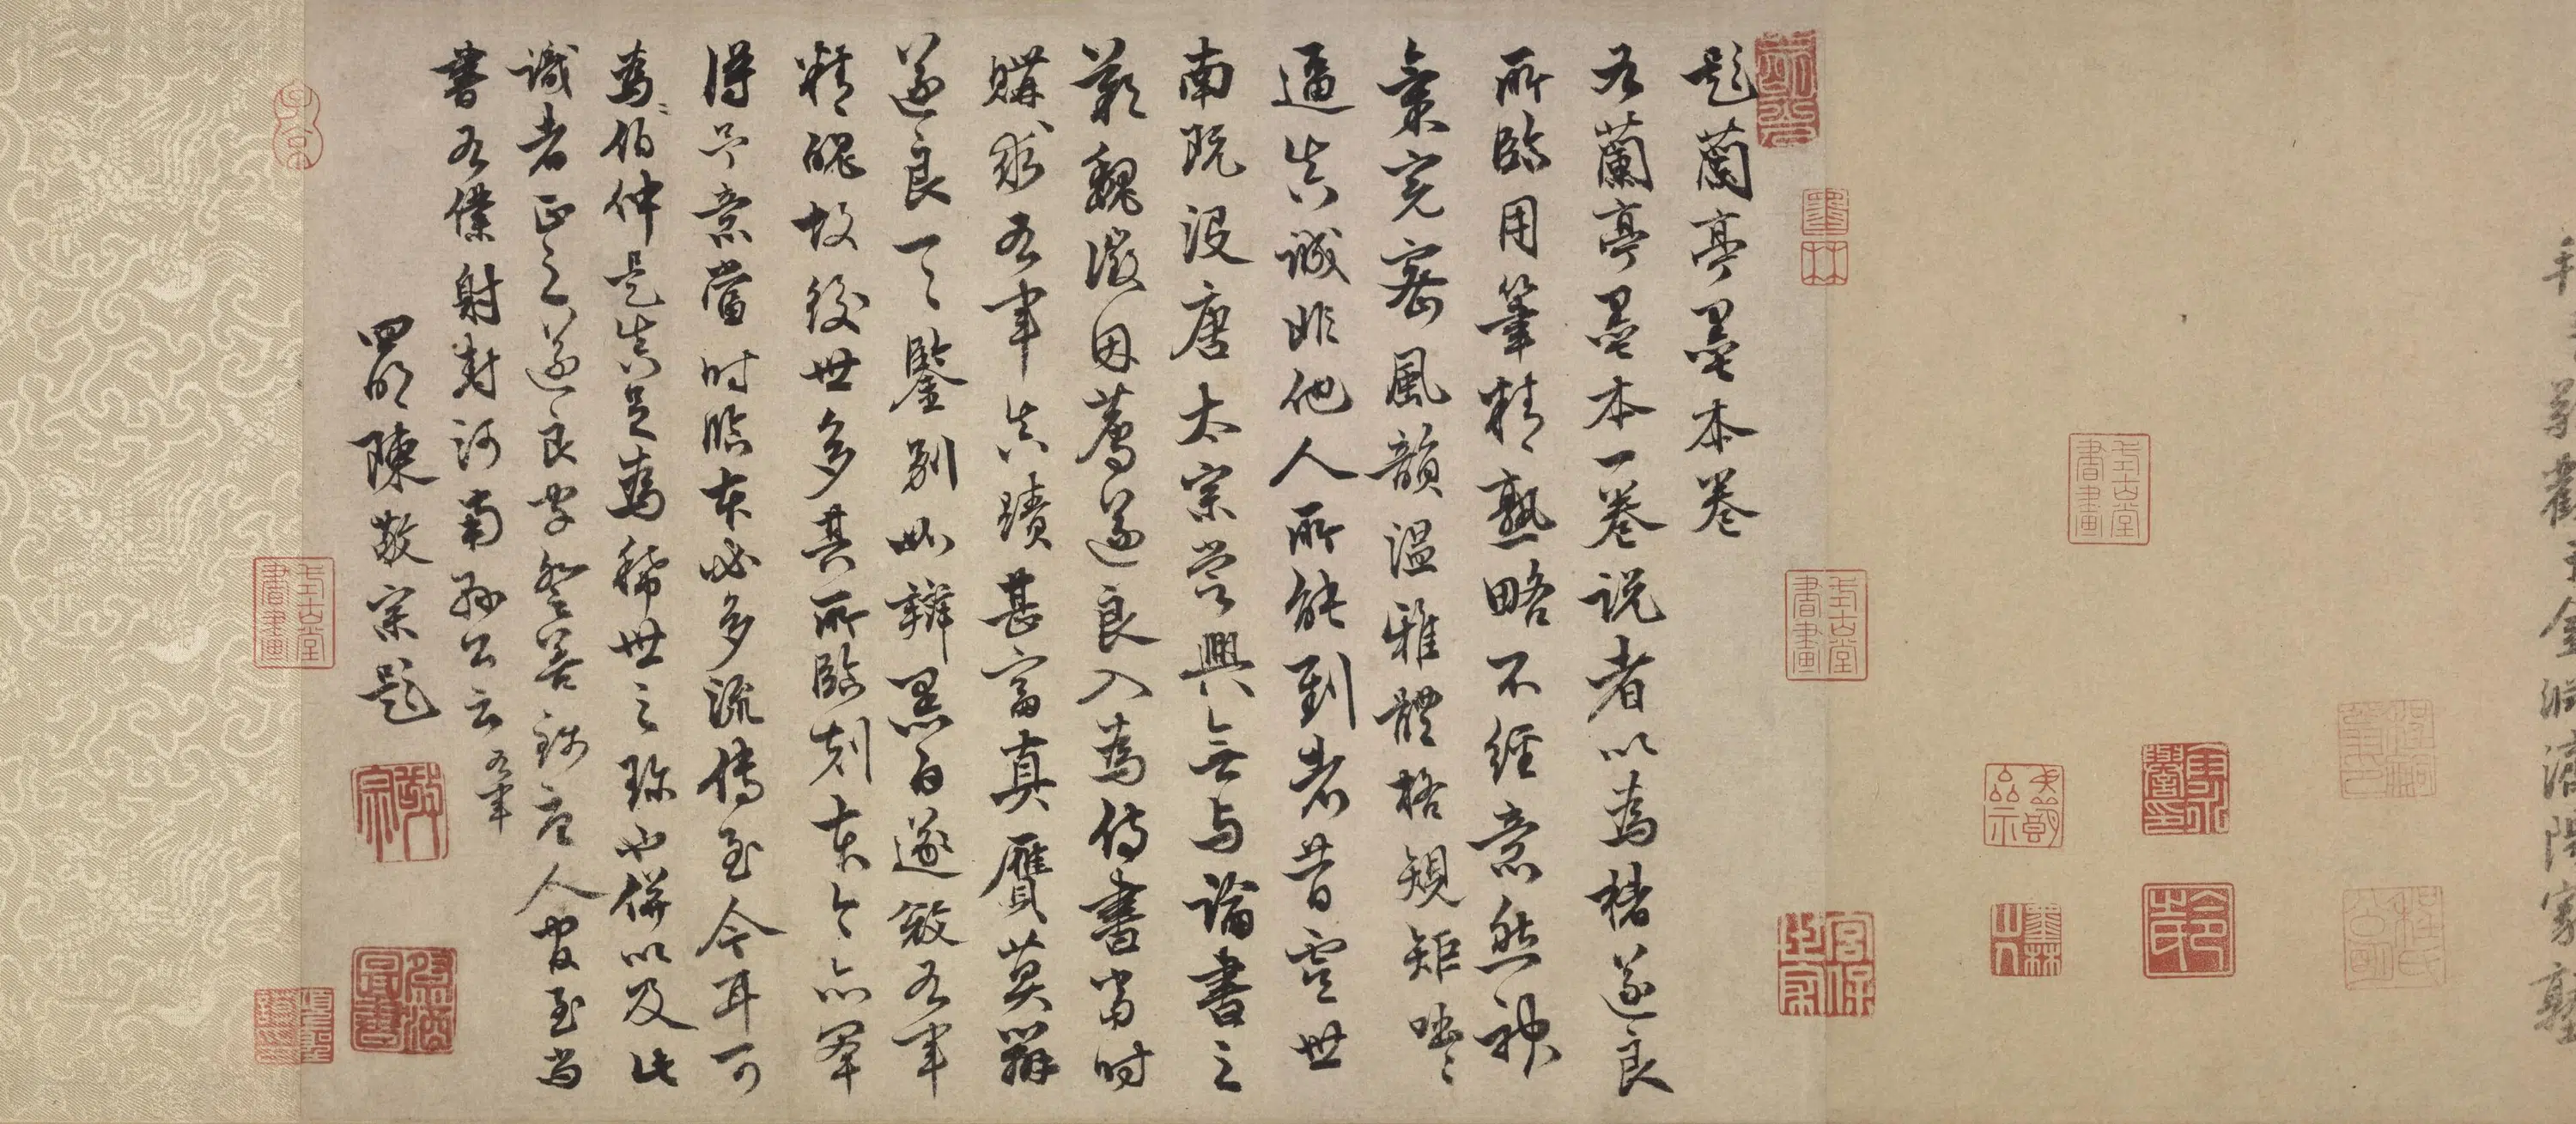 題蘭亭墨本卷
右蘭亭墨本一卷説者以為褚遂良
所臨用筆精熟略不經意然神
氣完密風韻温雅體格規矩
逼真誠非他人所能到者昔虞世
南既没唐太宗嘗興無与論書之
歎魏徵因薦遂良入為侍書當時
購求右軍真蹟甚富真贋莫辨
遂良一一鑒別如辨黑白遂致右軍
精醜故後世多其所臨刻本今亦罕
得予意當時臨本必多流傳至今耳可
為伯仲是真足為稀世之珍也併以及此
識者正之遂良字登善錢唐人官至尚
書右僕射封河南郡公云 右軍
四明陳敬宗題
敬宗
墨林山人
宮保世家